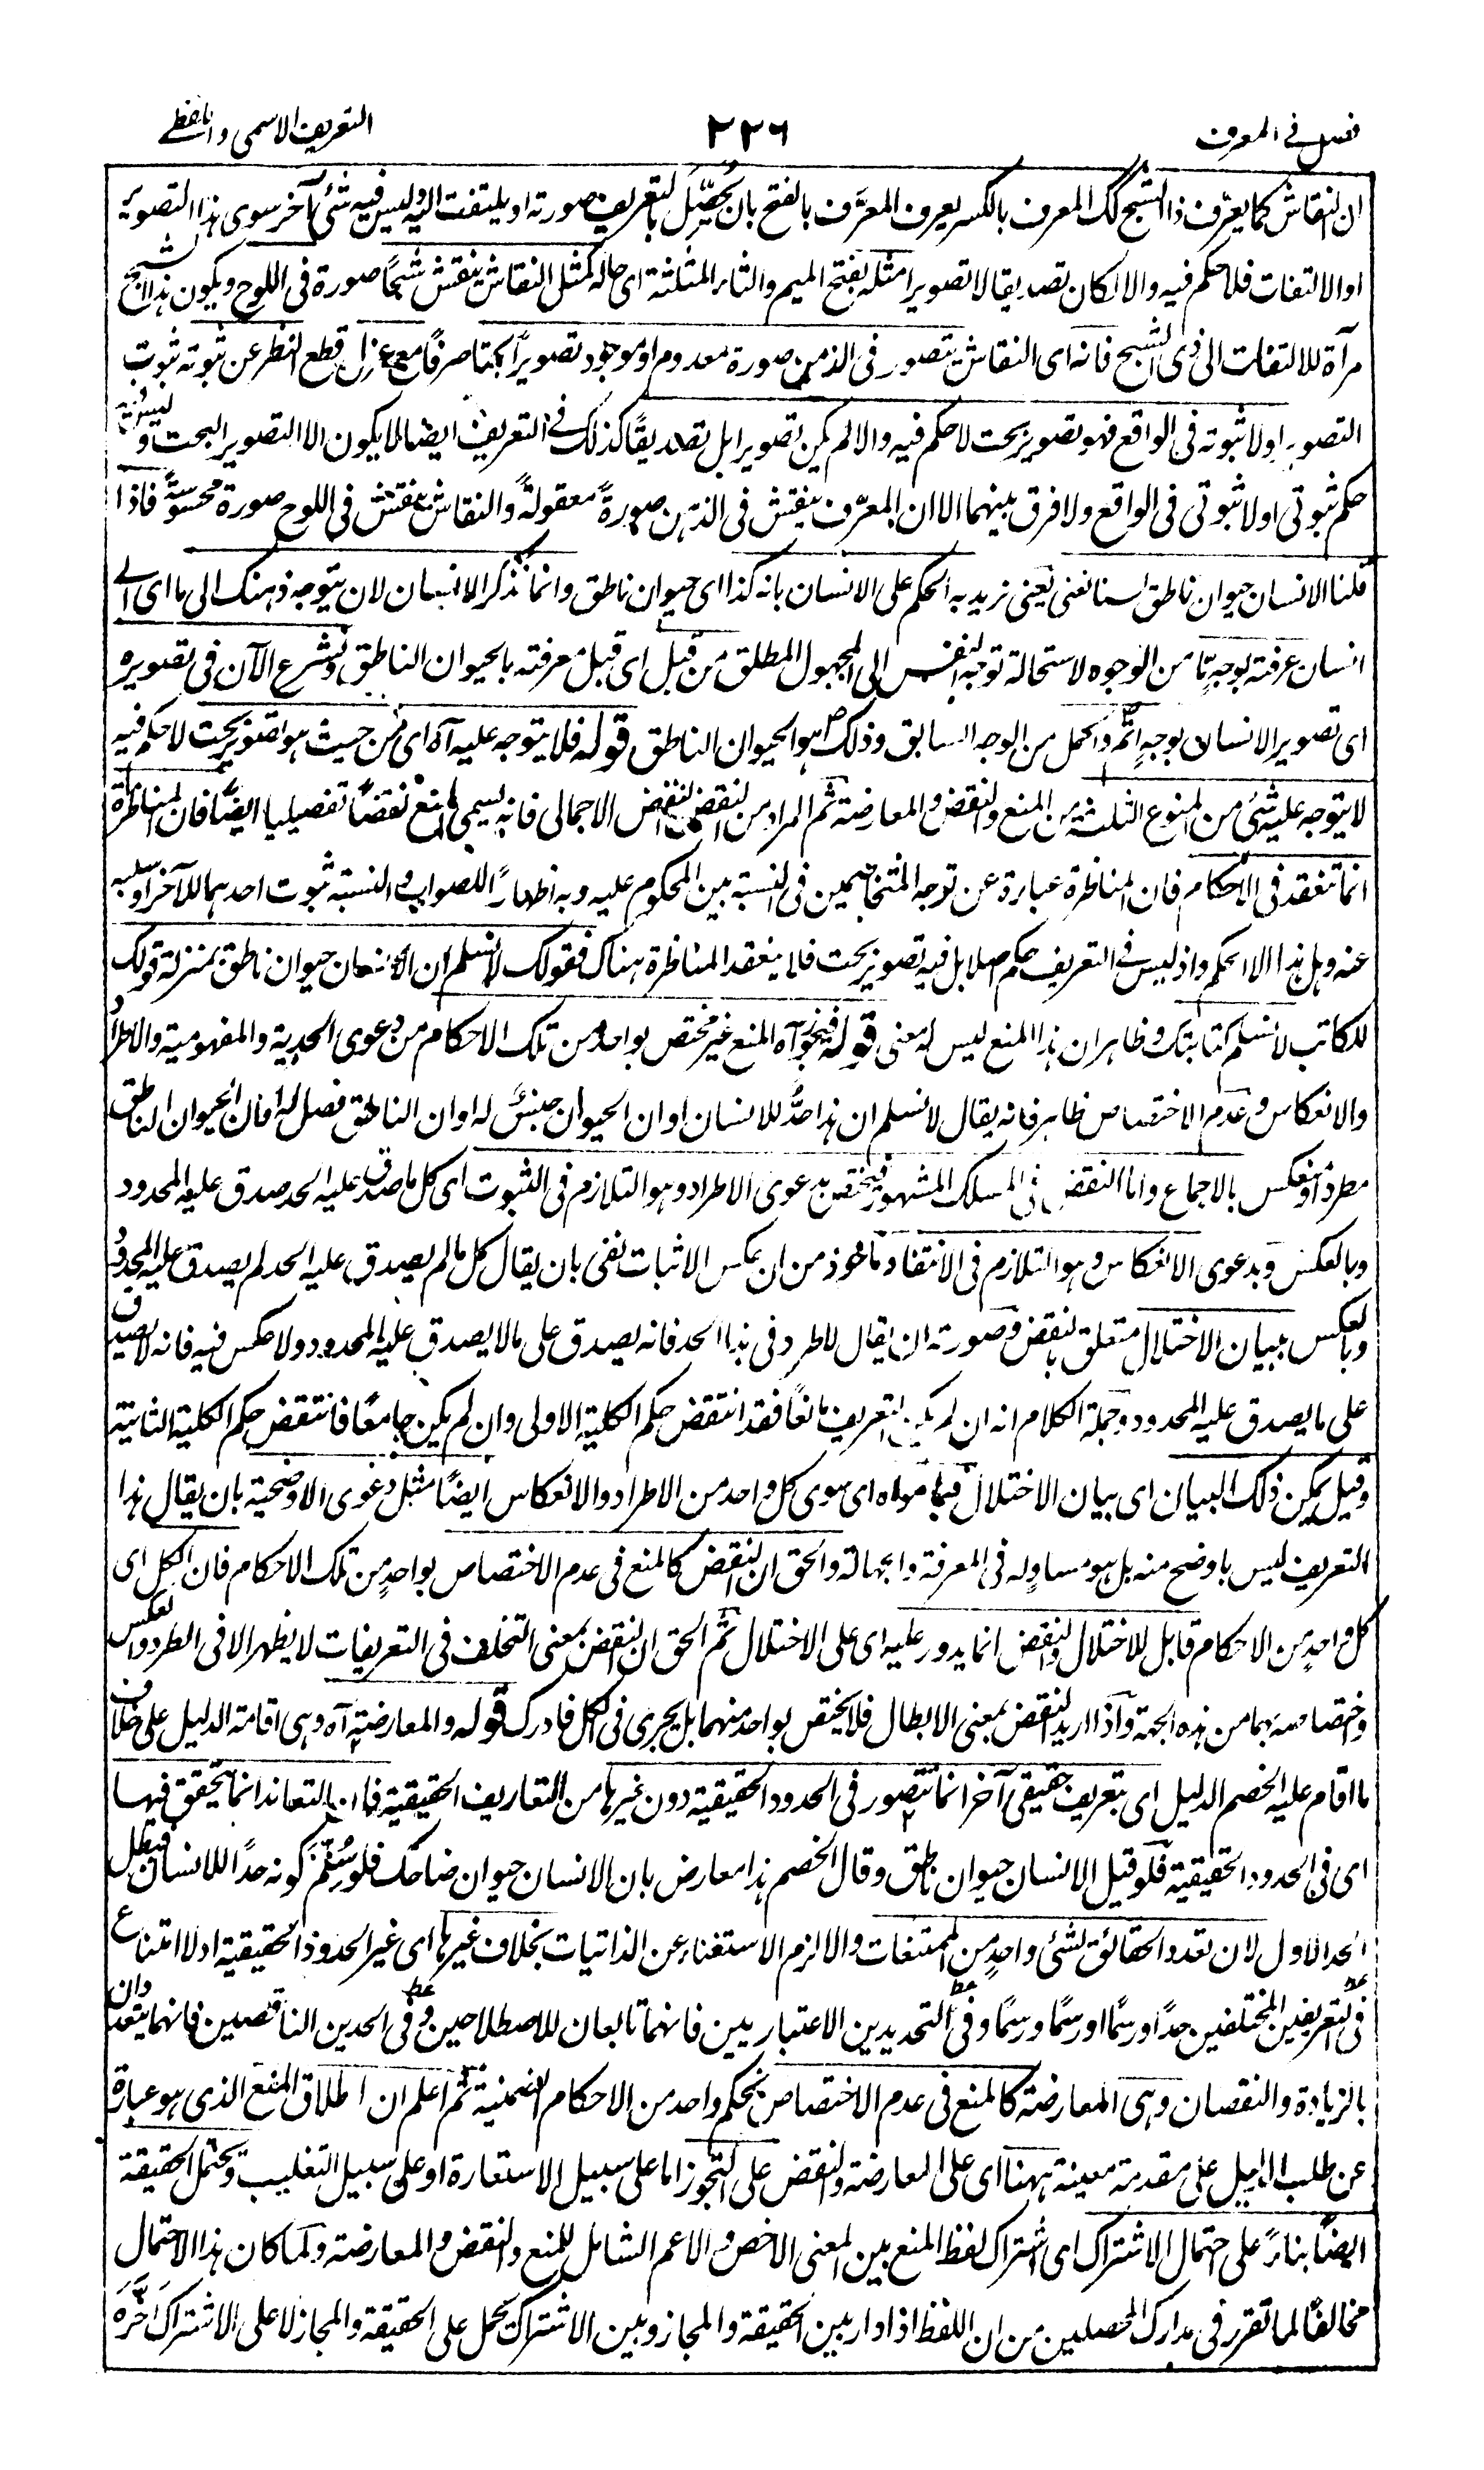 فصل فى المعرف
٢٢٦
التعريف الاسمى واللفظے
ان النقاش كما يعرّف ذا الشبح كك المعرف بالكسر يعرف المعرَّف بالفتح بان يُحصِّل بالتعريف صورته او يلتفت اليه وليس فيه شئ آخر سوى هذا التصوير
او الالتفات فلا حكم فيه والا لكان تصديقا لا تصويرا مثله بفتح الميم والثاء المثلثة اى حاله كمثل النقاش ينقش شبحًا صورة فى اللوح ويكون هذا الشبح
مرآة للالتفات الى ذى الشبح فانه اى النقاش يتصور فى الذهن صورة معدوم او موجود تصويرًا بحتا صرفًا مع عزل قطع النظر عن ثبوته ثبوت
التصوير او لا ثبوته فى الواقع فهو تصوير بحت لا حكم فيه والا لم يكن تصويرا بل تصديقًا كذلك فے التعريف ايضا لا يكون الا التصوير البحت وليس فيه
حكم ثبوتى او لا ثبوتى فى الواقع ولا فرق بينهما الا ان المعرّف ينقش فى الذهن صورةً معقولةً والنقاش ينقش فى اللوح صورة محسوسةً فاذا
قلنا الانسان حيوان ناطق لسنا نعنى يعنى نريد به الحكم على الانسان بانه كذا اى حيوان ناطق وانما نذكر الانسان لان يتوجه ذهنك الى ما اى الے
انسان عرفته بوجهٍ مّا من الوجوه لاستحالة توجه النفس الى المجهول المطلق من قبل اى قبل معرفته بالحيوان الناطق ونشرع الآن فى تصويره
اى تصوير الانسان بوجهٍ اتم واكمل من الوجه السابق وذلك هو الحيوان الناطق قوله فلا يتوجه عليه آه اى من حيث هو تصوير بحت لا حكم فيه
لا يتوجه عليه شئ من المنوع الثلثة من المنع والنقض والمعارضة ثم المراد من النقض النقض الاجمالى فانه يسمى المنع نقضًا تفصيليا ايضًا فان المناظرة
انما تنعقد فى الاحكام فان المناظرة عبارة عن توجه المتخاصمين فى النسبة بين المحكوم عليه وبه اظهارًا للصواب والنسبة ثبوت احدهما للآخر او سلبه
عنه وهل هذا الا الحكم واذ ليس فے التعريف حكم اصلا بل فيه تصوير بحت فلا ينعقد المناظرة هناك فقولك لا نسلم ان الانسان حيوان ناطق بمنزلة قولك
للكاتب لا نسلم كتابتك وظاهر ان هذا المنع ليس له معنى قوله فيجوز آه المنع غير مختص بواحد من تلك الاحكام من دعوى الحدية والمفهومية والاطراد
والانعكاس وعدم الاختصاص ظاهر فانه يقال لا نسلم ان هذا حدٌّ للانسان او ان الحيوان جنسٌ له او ان الناطق فصل له او ان الحيوان الناطق
مطرد او منعكس بالاجماع واما النقض فى المسلك المشهور فيختص بدعوى الاطراد وهو التلازم فى الثبوت اى كل ما صدق عليه الحد صدق عليه المحدود
وبالعكس وبدعوى الانعكاس وهو التلازم فى الانتفاء ماخوذ من ان عكس الاثبات نفى بان يقال كل ما لم يصدق عليه الحد لم يصدق عليه المحدود
وبالعكس ببيان الاختلال متعلق بالنقض وصورته ان يقال لا طرد فى هذا الحد فانه يصدق على ما لا يصدق عليه المحدود ولا عكس فيه فانه لا يصدق
على ما يصدق عليه المحدود وجملة الكلام انه ان لم يكن التعريف مانعًا فقد انتقض حكم الكلية الاولى وان لم يكن جامعًا فانتقض حكم الكلية الثانية
وقيل يمكن ذلك البيان اى بيان الاختلال فيما سواه اى سوى كل واحد من الاطراد والانعكاس ايضًا مثل دعوى الاوضحية بان يقال هذا
التعريف ليس باوضح منه بل هو مساوٍ له فى المعرفة والجهالة والحق ان النقض كالمنع فى عدم الاختصاص بواحدٍ من تلك الاحكام فان الكل اى
كل واحدٍ من الاحكام قابل للاختلال والنقض انما يدور عليه اى على الاختلال ثم الحق ان النقض بمعنى التخلف فى التعريفات لا يظهر الا فى الطرد والعكس
واختصاصه بهما من هذه الجهة واذا اريد النقض بمعنى الابطال فلا يختص بواحد منهما بل يجرى فى الكل فادرك قوله والمعارضة آه وهى اقامة الدليل على خلاف
ما اقام عليه الخصم الدليل اى بتعريف حقيقى آخر انما تتصور فى الحدود الحقيقية دون غيرها من التعاريف الحقيقية فان التعاند انما يتحقق فيها
اى فى الحدود الحقيقية فلو قيل الانسان حيوان ناطق وقال الخصم هذا معارض بان الانسان حيوان ضاحك فلو سُلِّمَ كونه حدًا للانسان فيبطل
الحد الاول لان تعدد الحقائق لشئ واحدٍ من الممتنعات والا لزم الاستغناء عن الذاتيات بخلاف غيرها اى غير الحدود الحقيقية اذ لا امتناع
فى التعريفين المختلفين حدًا ورسمًا او رسمًا ورسمًا وفى التحديدين الاعتباريين فانهما تابعان للاصطلاحين وفى الحدين الناقصين فانهما يتعددان
بالزيادة والنقصان وهى المعارضة كالمنع فى عدم الاختصاص بحكم واحد من الاحكام الضمنية ثم اعلم ان اطلاق المنع الذى هو عبارة
عن طلب الدليل على مقدمة معينة ههنا اى على المعارضة والنقض على التجوز اما على سبيل الاستعارة او على سبيل التغليب ويحتمل الحقيقة
ايضًا بناءً على احتمال الاشتراك اى اشتراك لفظ المنع بين المعنى الاخص والاعم الشامل للمنع والنقض والمعارضة ولما كان هذا الاحتمال
مخالفًا لما تقرر فى مدارك المحصلين من ان اللفظ اذا دار بين الحقيقة والمجاز وبين الاشتراك يحمل على الحقيقة والمجاز لا على الاشتراك اخّره